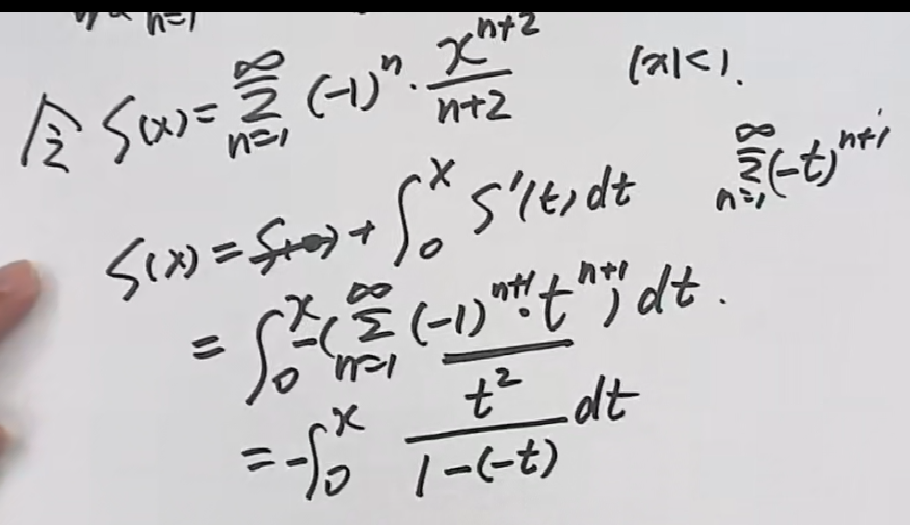 n=1
令 S(x) = ∑_{n=1}^{∞} (-1)^n · \frac{x^{n+2}}{n+2} |x|<1.
S(x) = S(0) + ∫_0^x S'(t) dt ∑_{n=1}^{∞} (-t)^{n+1}
= ∫_0^x -(∑_{n=1}^{∞} (-1)^{n+1} · t^{n+1}) dt.
= -∫_0^x \frac{t^2}{1-(-t)} dt